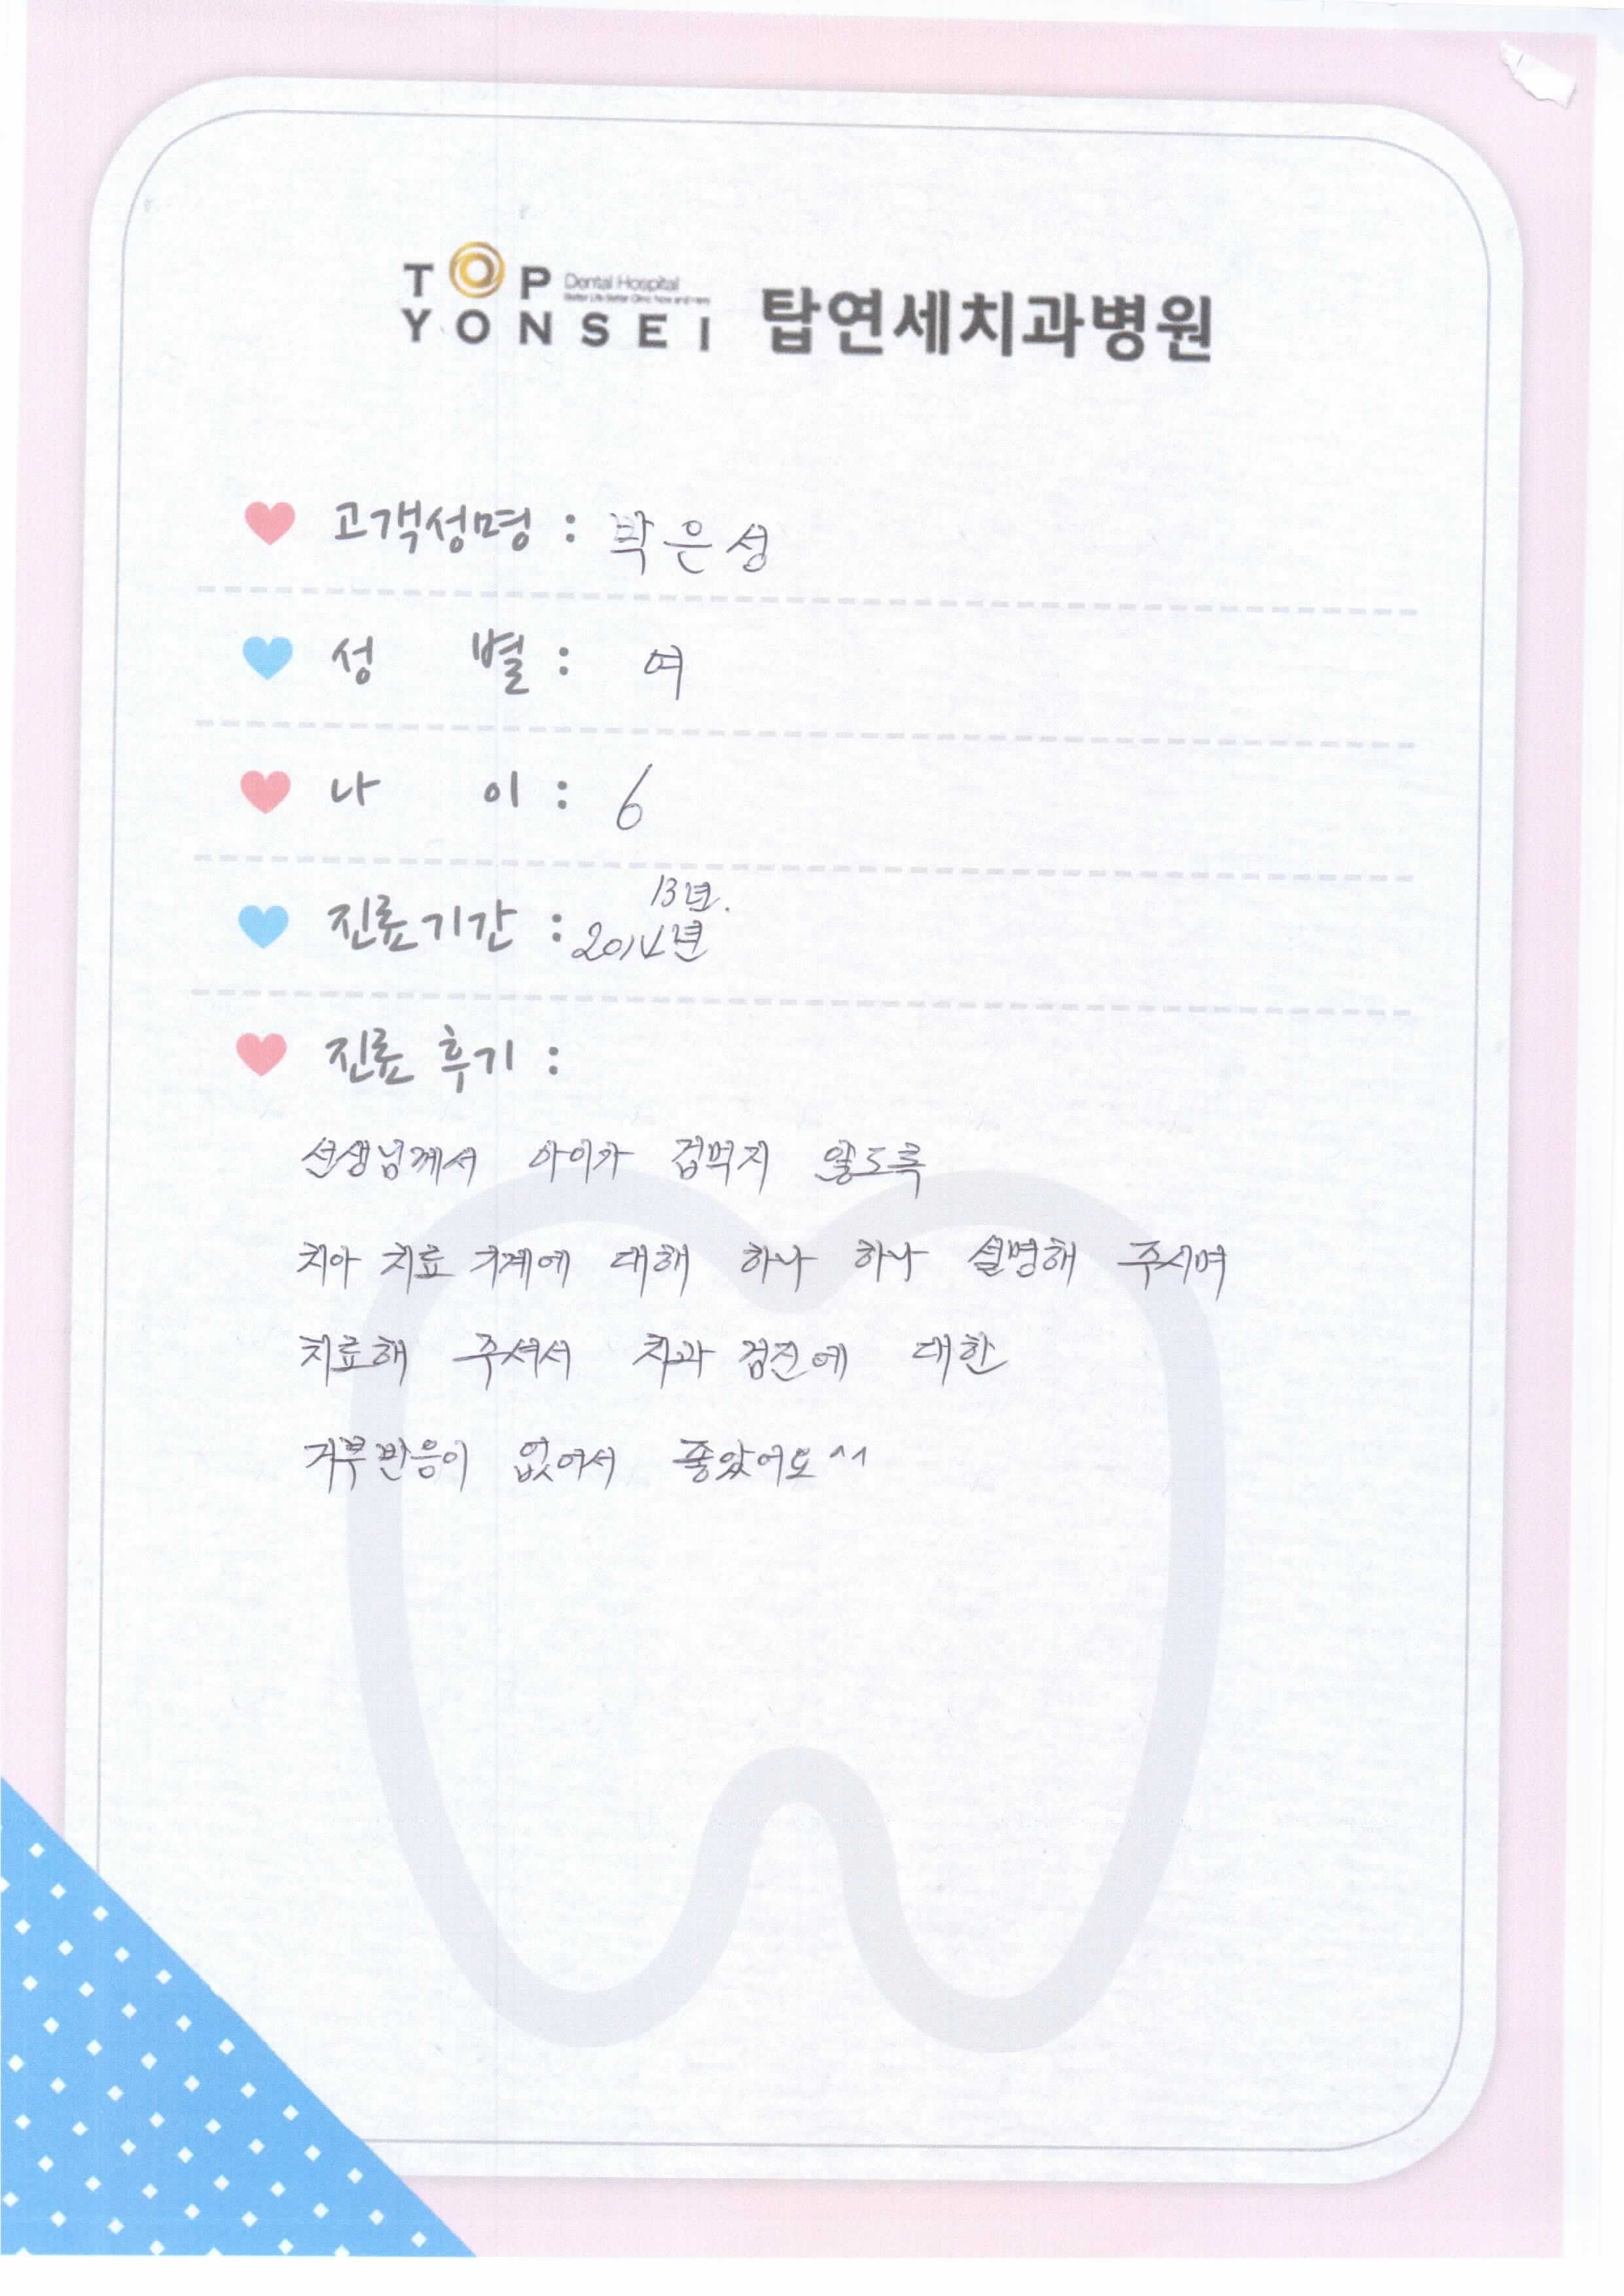 TOP Dental Hospital
Better Life Better Clinic Now and Here
YONSEI 탑연세치과병원
고객성명 : 박은성
성 별 : 여
나 이 : 6
13년.
진료기간 : 2014년
진료 후기 :
선생님께서 아이가 겁먹지 않도록
치아 치료 기계에 대해 하나 하나 설명해 주시며
치료해 주셔서 치과 검진에 대한
거부반응이 없어서 좋았어요^^